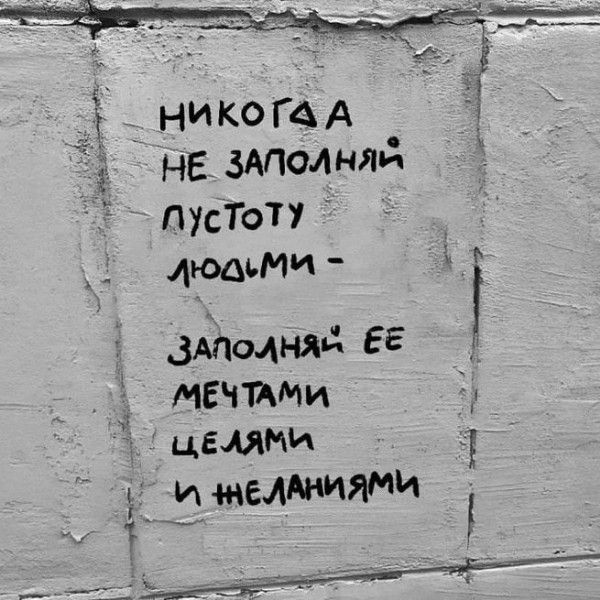 НИКОГДА
НЕ ЗАПОЛНЯЙ
ПУСТОТУ
ЛЮДЬМИ -
ЗАПОЛНЯЙ ЕЕ
МЕЧТАМИ
ЦЕЛЯМИ
И ЖЕЛАНИЯМИ